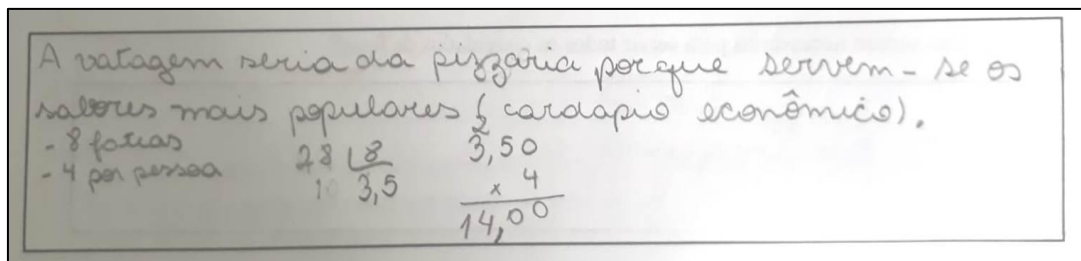 A vatagem seria da pizzaria porque servem-se os
sabores mais populares ( cardapio econômico).
- 8 fatias 28 8 3,50
- 4 por pessoa 10 3,5 x 4
14,00